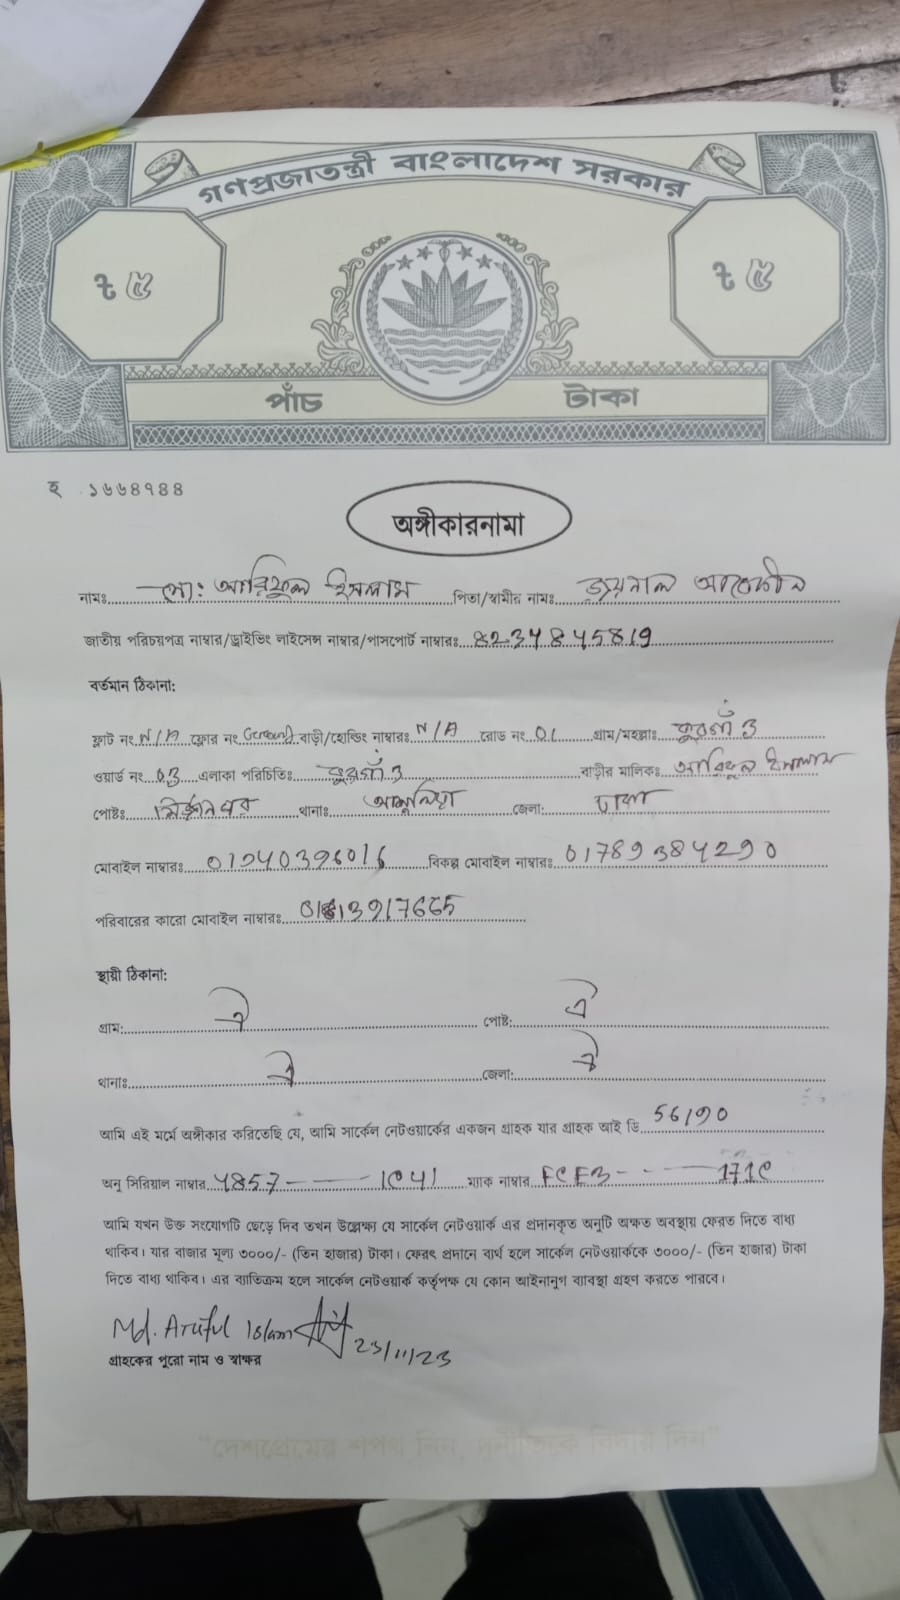 গণপ্রজাতন্ত্রী বাংলাদেশ সরকার
৳ ৫ ৳ ৫
পাঁচ টাকা
হ ১৬৬৪৭৪৪
অঙ্গীকারনামা
নামঃ মো: আরিফুল ইসলাম পিতা/স্বামীর নামঃ জয়নাল আবেদীন
জাতীয় পরিচয়পত্র নাম্বার/ড্রাইভিং লাইসেন্স নাম্বার/পাসপোর্ট নাম্বারঃ 8234845819
বর্তমান ঠিকানা:
ফ্লাট নং N/A ফ্লোর নং Ground বাড়ী/হোল্ডিং নাম্বারঃ N/A রোড নং 01 গ্রাম/মহল্লাঃ
ওয়ার্ড নং 03 এলাকা পরিচিতিঃ বাড়ীর মালিকঃ আরিফুল ইসলাম
পোষ্টঃ থানাঃ আশুলিয়া জেলা: ঢাকা
মোবাইল নাম্বারঃ বিকল্প মোবাইল নাম্বারঃ
পরিবারের কারো মোবাইল নাম্বারঃ
স্থায়ী ঠিকানা:
গ্রাম: ঐ পোষ্ট: ঐ
থানাঃ ঐ জেলা: ঐ
আমি এই মর্মে অঙ্গীকার করিতেছি যে, আমি সার্কেল নেটওয়ার্কের একজন গ্রাহক যার গ্রাহক আই ডি
অনু সিরিয়াল নাম্বার ম্যাক নাম্বার
আমি যখন উক্ত সংযোগটি ছেড়ে দিব তখন উল্লেক্ষ্য যে সার্কেল নেটওয়ার্ক এর প্রদানকৃত অনুটি অক্ষত অবস্থায় ফেরত দিতে বাধ্য
থাকিব। যার বাজার মূল্য ৩০০০/- (তিন হাজার) টাকা। ফেরৎ প্রদানে ব্যর্থ হলে সার্কেল নেটওয়ার্ককে ৩০০০/- (তিন হাজার) টাকা
দিতে বাধ্য থাকিব। এর ব্যতিক্রম হলে সার্কেল নেটওয়ার্ক কর্তৃপক্ষ যে কোন আইনানুগ ব্যবস্থা গ্রহণ করতে পারবে।
Md. Ariful Islam 23/11/23
গ্রাহকের পুরো নাম ও স্বাক্ষর
"দেশপ্রেমের শপথ নিন, দুর্নীতিকে বিদায় দিন"